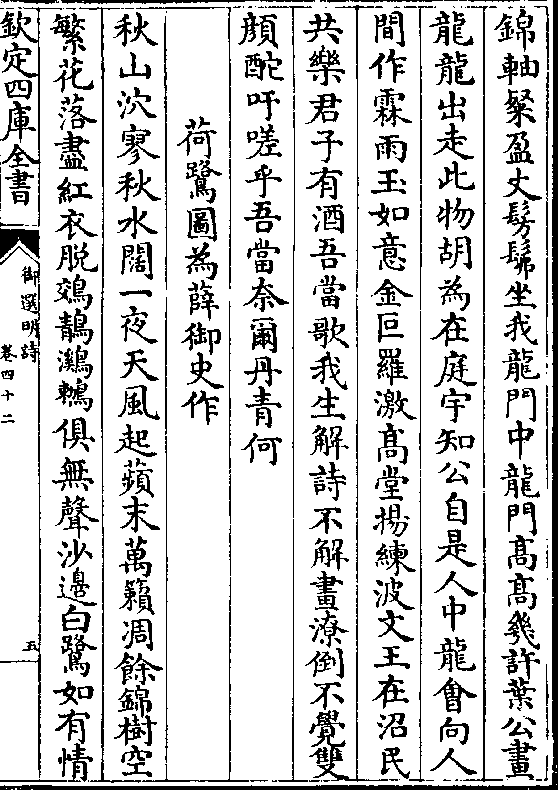 錦軸粲盈丈髣髴坐我龍門中龍門髙髙幾許葉公畫
龍龍出走此物胡為在庭宇知公自是人中龍會向人
間作霖雨玉如意金叵羅激髙堂揚練波文王在沼民
共樂君子有酒吾當歌我生解詩不解畫潦倒不覺雙
顔酡吁嗟乎吾當奈爾丹青何
荷鷺圖為薛御史作
秋山泬寥秋水闊一夜天風起蘋末萬籟凋餘錦樹空
繁花落盡紅衣脱鵁鶄鸂鶒俱無聲沙邉白鷺如有情
欽定四庫全書
御選明詩
卷四十二
五